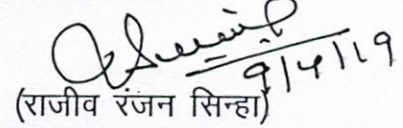 9/4/19
(राजीव रंजन सिन्हा)